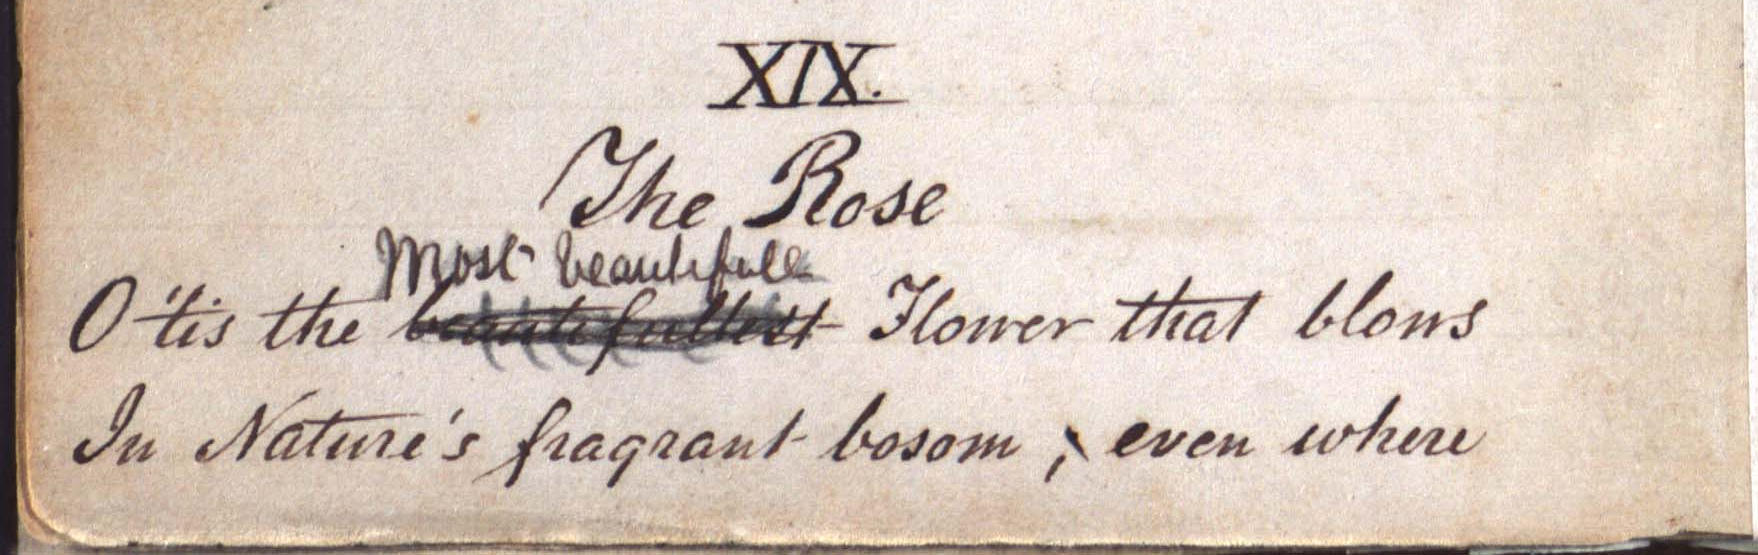 XIX.
The Rose
Most beautifull
O 'tis the beautifullest Flower that blows
In Nature's fragrant bosom, even where